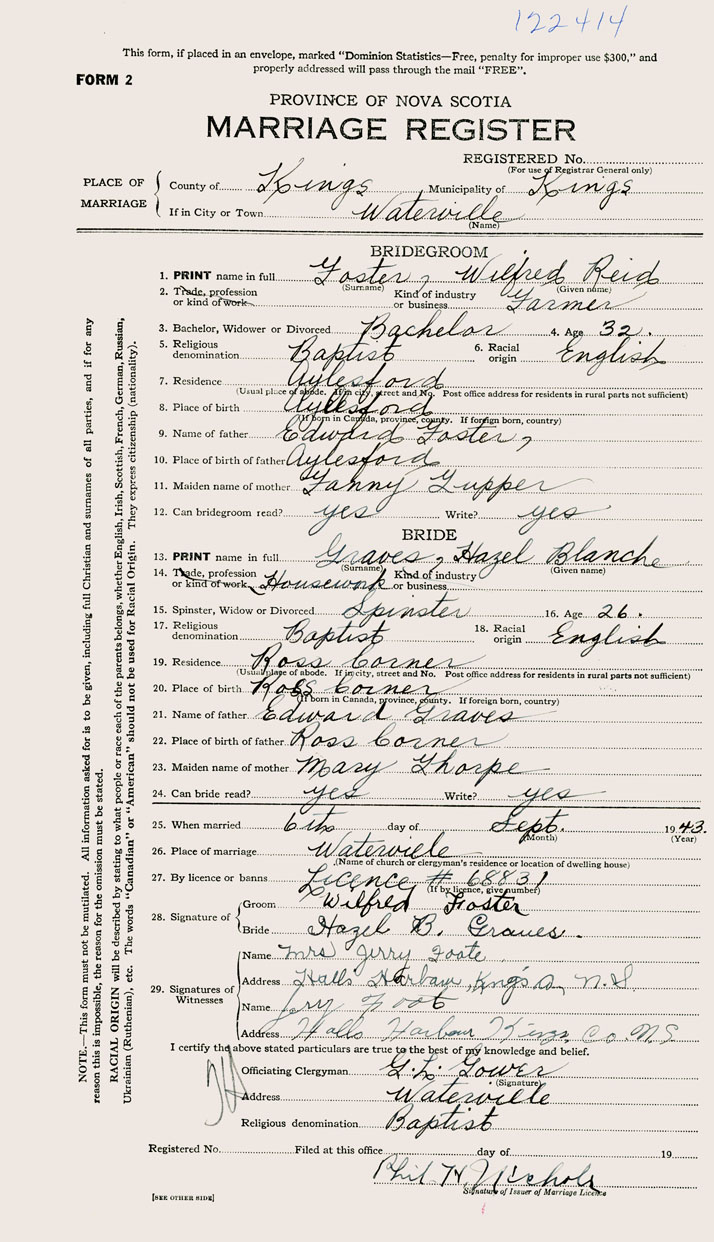 122414
This form, if placed in an envelope, marked “Dominion Statistics—Free, penalty for improper use $300,” and
properly addressed will pass through the mail “FREE”.
FORM 2
PROVINCE OF NOVA SCOTIA
MARRIAGE REGISTER
REGISTERED No.
(For use of Registrar General only)
PLACE OF MARRIAGE
County of Kings Municipality of Kings
If in City or Town Waterville
(Name)
BRIDEGROOM
1. PRINT name in full Foster, Wilfred Reid
(Surname) (Given name)
2. Trade, profession or kind of work Kind of industry or business Farmer
3. Bachelor, Widower or Divorced Bachelor 4. Age 32.
5. Religious denomination Baptist 6. Racial origin English
7. Residence Aylesford
(Usual place of abode. If in city, street and No. Post office address for residents in rural parts not sufficient)
8. Place of birth Aylesford
(If born in Canada, province, county. If foreign born, country)
9. Name of father Edward Foster,
10. Place of birth of father Aylesford
11. Maiden name of mother Fanny Tupper
12. Can bridegroom read? yes Write? yes
BRIDE
13. PRINT name in full Graves, Hazel Blanche
(Surname) (Given name)
14. Trade, profession or kind of work Housework Kind of industry or business
15. Spinster, Widow or Divorced Spinster 16. Age 26.
17. Religious denomination Baptist 18. Racial origin English
19. Residence Ross Corner
(Usual place of abode. If in city, street and No. Post office address for residents in rural parts not sufficient)
20. Place of birth Ross Corner
(If born in Canada, province, county. If foreign born, country)
21. Name of father Edward Graves
22. Place of birth of father Ross Corner
23. Maiden name of mother Mary Thorpe
24. Can bride read? yes Write? yes
25. When married 6th day of Sept. 1943.
(Month) (Year)
26. Place of marriage Waterville
(Name of church or clergyman's residence or location of dwelling house)
27. By licence or banns Licence # 68831
(If by licence, give number)
28. Signature of
Groom Wilfred Foster
Bride Hazel B. Graves.
29. Signatures of Witnesses
Name Mrs Jerry Foote
Address Halls Harbour, King's Co, N.S.
Name Jry Foot
Address Halls Harbour Kings Co. N.S
I certify the above stated particulars are true to the best of my knowledge and belief.
Officiating Clergyman G. L. Gower
(Signature)
Address Waterville
Religious denomination Baptist
Registered No. Filed at this office day of 19
Phil H. Nichols
Signature of Issuer of Marriage Licence
[SEE OTHER SIDE]
NOTE.—This form must not be mutilated. All information asked for is to be given, including full Christian and surnames of all parties, and if for any
reason this is impossible, the reason for the omission must be stated.
RACIAL ORIGIN will be described by stating to what people or race each of the parents belongs, whether English, Irish, Scottish, French, German, Russian,
Ukrainian (Ruthenian), etc. The words “Canadian” or “American” should not be used for Racial Origin. They express citizenship (nationality).